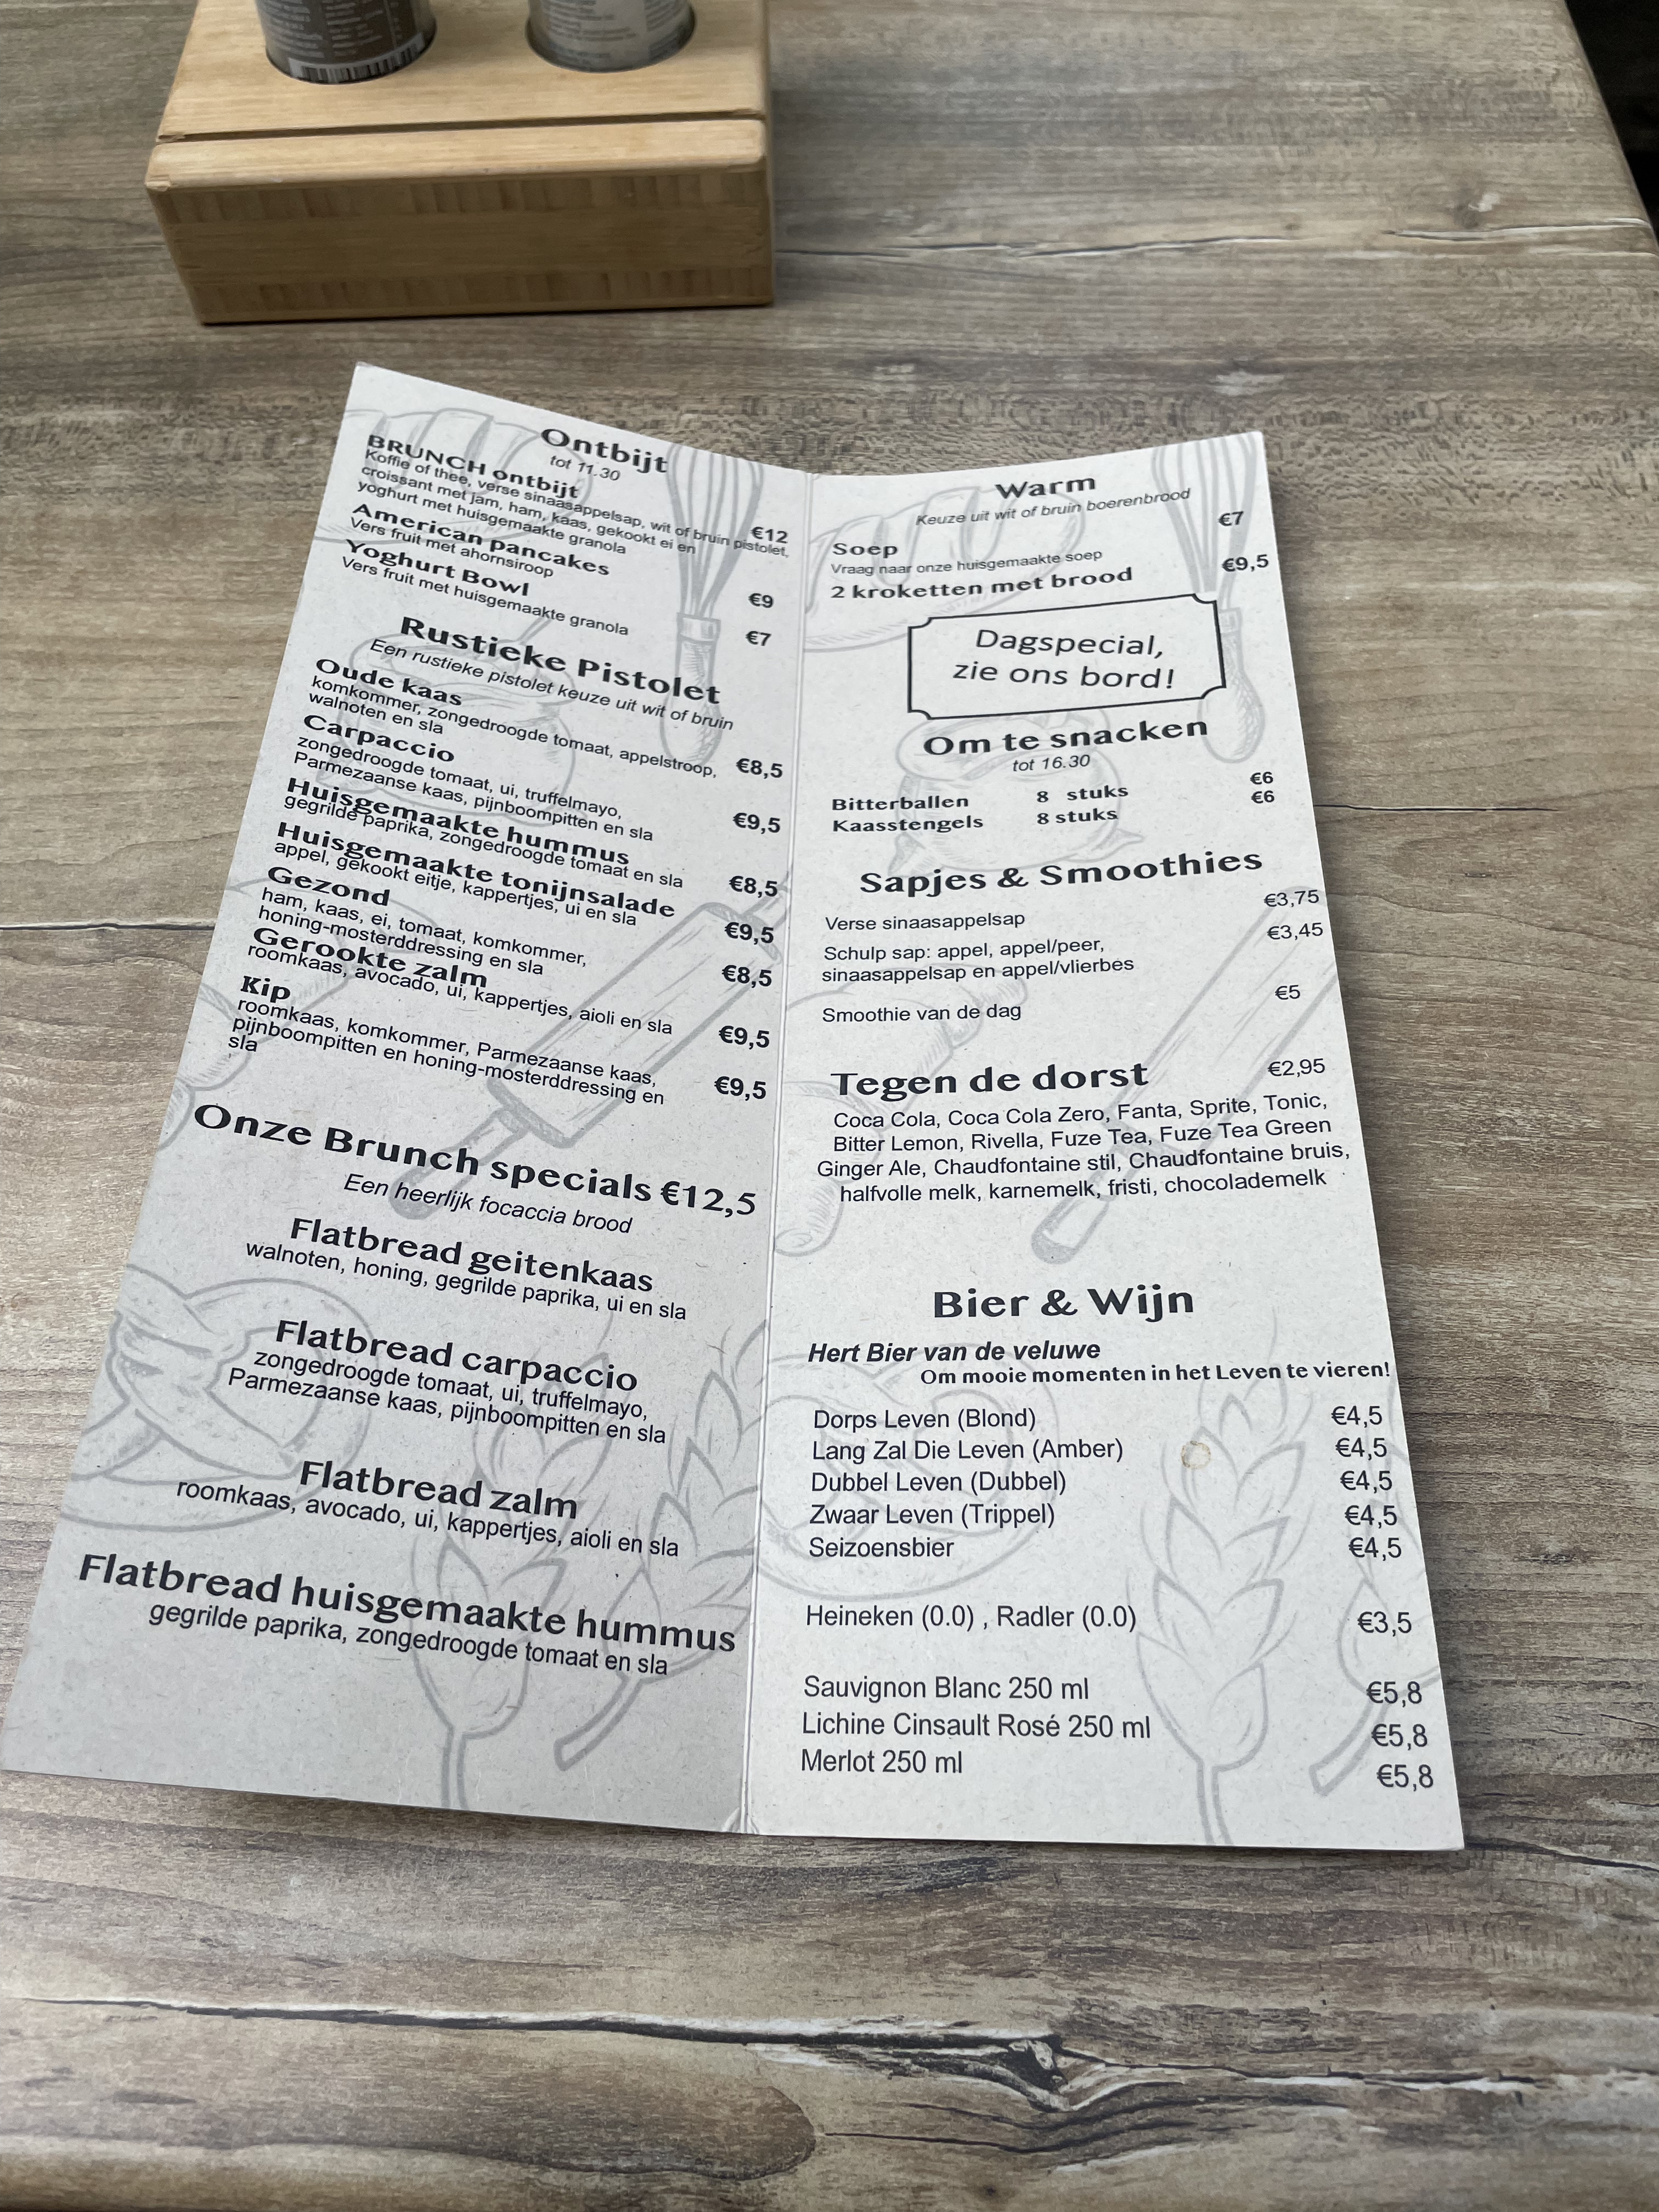 Ontbijt
tot 11.30
BRUNCH ontbijt
Koffie of thee, verse sinaasappelsap, wit of bruin pistolet,
croissant met jam, ham, kaas, gekookt ei en
yoghurt met huisgemaakte granola
€12
American pancakes
Vers fruit met ahornsiroop
€9
Yoghurt Bowl
Vers fruit met huisgemaakte granola
€7
Rustieke Pistolet
Een rustieke pistolet keuze uit wit of bruin
Oude kaas
komkommer, zongedroogde tomaat, appelstroop,
walnoten en sla
€8,5
Carpaccio
zongedroogde tomaat, ui, truffelmayo,
Parmezaanse kaas, pijnboompitten en sla
€9,5
Huisgemaakte hummus
gegrilde paprika, zongedroogde tomaat en sla
€8,5
Huisgemaakte tonijnsalade
appel, gekookt eitje, kappertjes, ui en sla
€9,5
Gezond
ham, kaas, ei, tomaat, komkommer,
honing-mosterddressing en sla
€8,5
Gerookte zalm
roomkaas, avocado, ui, kappertjes, aioli en sla
€9,5
Kip
roomkaas, komkommer, Parmezaanse kaas,
pijnboompitten en honing-mosterddressing en
sla
€9,5
Onze Brunch specials €12,5
Een heerlijk focaccia brood
Flatbread geitenkaas
walnoten, honing, gegrilde paprika, ui en sla
Flatbread carpaccio
zongedroogde tomaat, ui, truffelmayo,
Parmezaanse kaas, pijnboompitten en sla
Flatbread zalm
roomkaas, avocado, ui, kappertjes, aioli en sla
Flatbread huisgemaakte hummus
gegrilde paprika, zongedroogde tomaat en sla
Warm
Keuze uit wit of bruin boerenbrood
Soep €7
Vraag naar onze huisgemaakte soep
2 kroketten met brood €9,5
Dagspecial,
zie ons bord!
Om te snacken
tot 16.30
Bitterballen 8 stuks €6
Kaasstengels 8 stuks €6
Sapjes & Smoothies
Verse sinaasappelsap €3,75
Schulp sap: appel, appel/peer, €3,45
sinaasappelsap en appel/vlierbes
Smoothie van de dag €5
Tegen de dorst €2,95
Coca Cola, Coca Cola Zero, Fanta, Sprite, Tonic,
Bitter Lemon, Rivella, Fuze Tea, Fuze Tea Green
Ginger Ale, Chaudfontaine stil, Chaudfontaine bruis,
halfvolle melk, karnemelk, fristi, chocolademelk
Bier & Wijn
Hert Bier van de veluwe
Om mooie momenten in het Leven te vieren!
Dorps Leven (Blond) €4,5
Lang Zal Die Leven (Amber) €4,5
Dubbel Leven (Dubbel) €4,5
Zwaar Leven (Trippel) €4,5
Seizoensbier €4,5
Heineken (0.0) , Radler (0.0) €3,5
Sauvignon Blanc 250 ml €5,8
Lichine Cinsault Rosé 250 ml €5,8
Merlot 250 ml €5,8